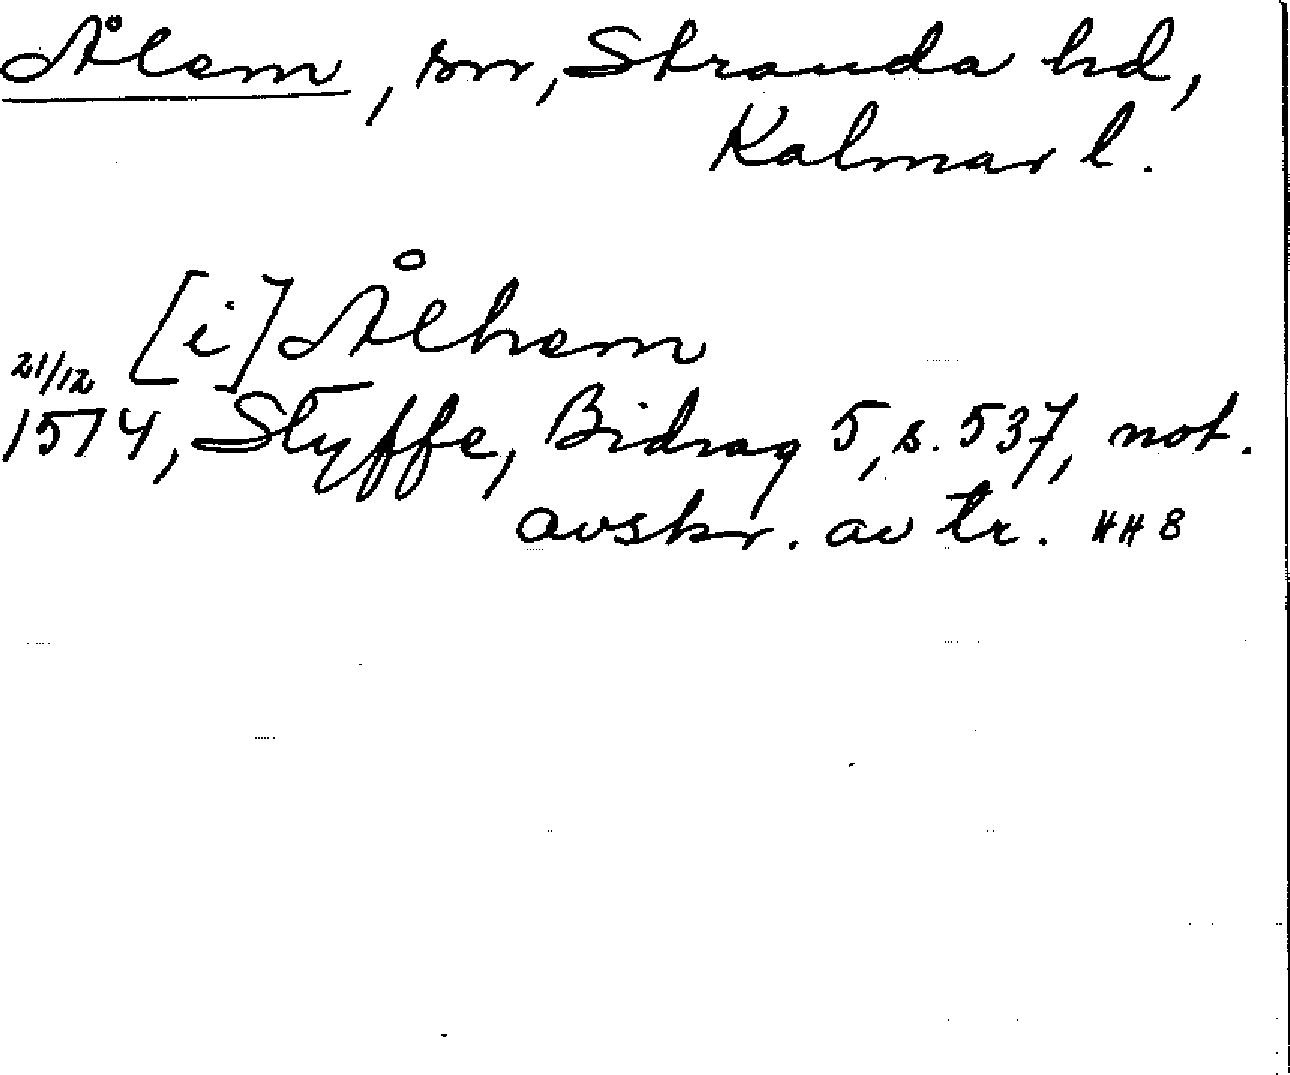 Ålem, sn, Stranda hd,
Kalmar l.
[i] Ålhem
21/12
1574, Styffe, Bidrag 5, s. 537, not.
avskr. av tr. HH B